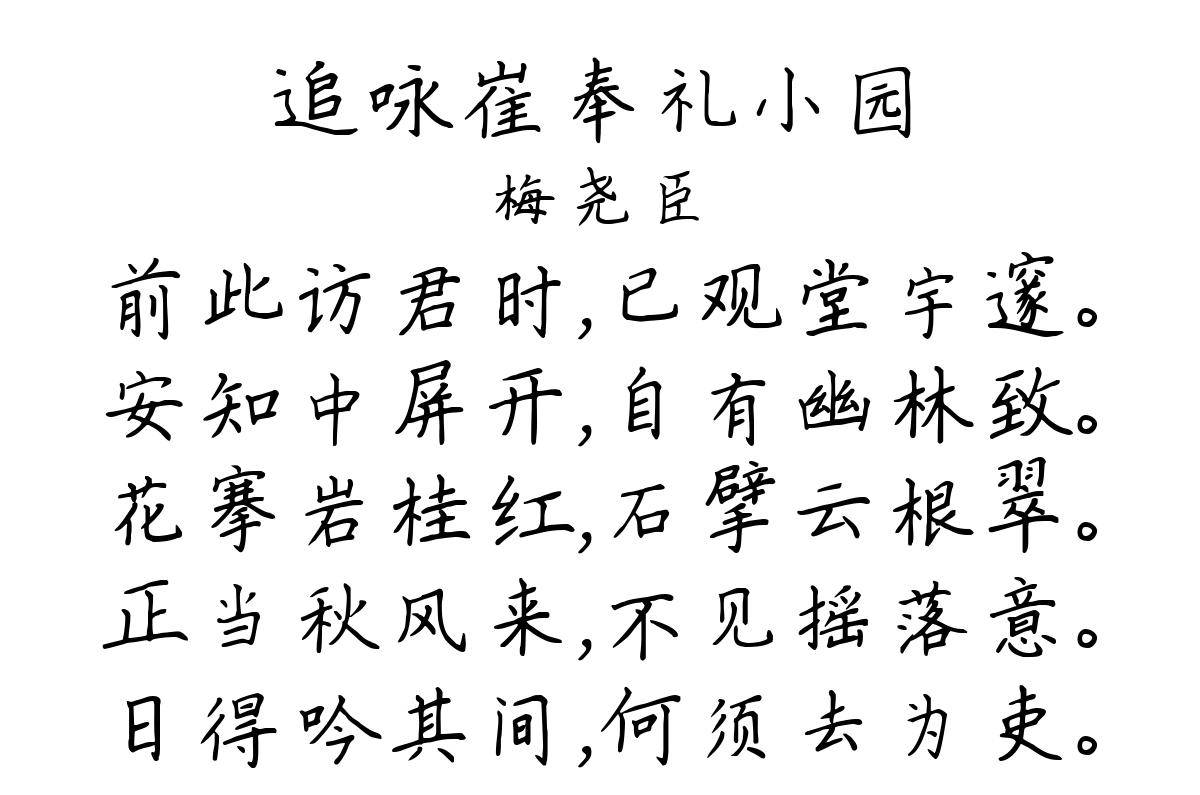 追咏崔奉礼小园
梅尧臣
前此访君时,已观堂宇邃。
安知中屏开,自有幽林致。
花搴岩桂红,石擘云根翠。
正当秋风来,不见摇落意。
日得吟其间,何须去为吏。